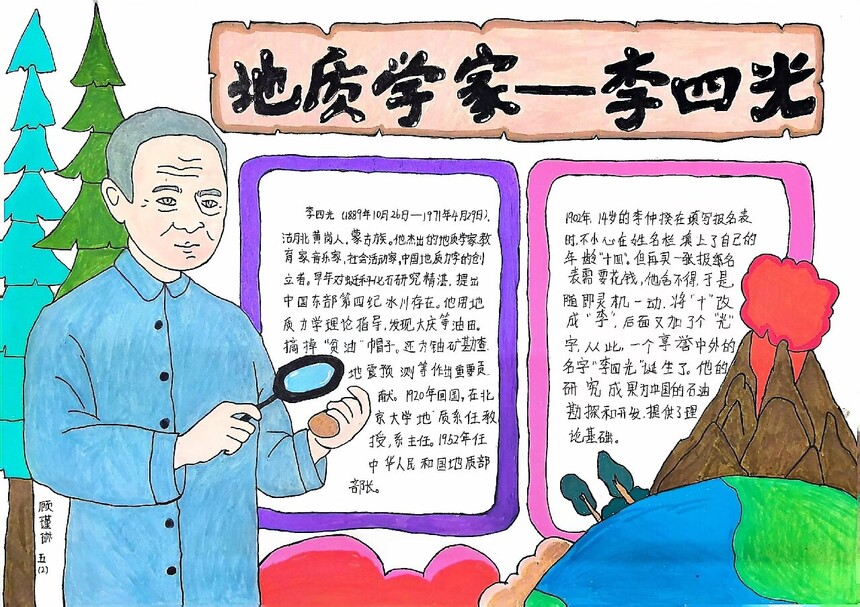 地质学家—李四光
李四光（1889年10月26日—1971年4月29日），
湖北黄岗人，蒙古族。他杰出的地质学家教
育家音乐家，社会活动家，中国地质力学的创
立者。早年对蜓科化石研究精湛，提出
中国东部第四纪冰川存在。他用地
质力学理论指导，发现大庆等油田。
摘掉“贫油”帽子。还为铀矿勘查
地震预测等作出重要贡
献。1920年回国，在北
京大学地质系任教
授，系主任。1952年任
中华人民和国地质部
部长。
1902年，14岁的李仲揆在填写报名表
时，不小心在姓名栏填上了自己的
年龄“十四”。但再买一张报名
表需要花钱，他舍不得，于是
随即灵机一动，将“十”改
成“李”，后面又加了个“光”
字，从此，一个享誉中外的
名字“李四光”诞生了。他的
研究成果为中国的石油
勘探和开发，提供了理
论基础。
顾瑾
五
(2)